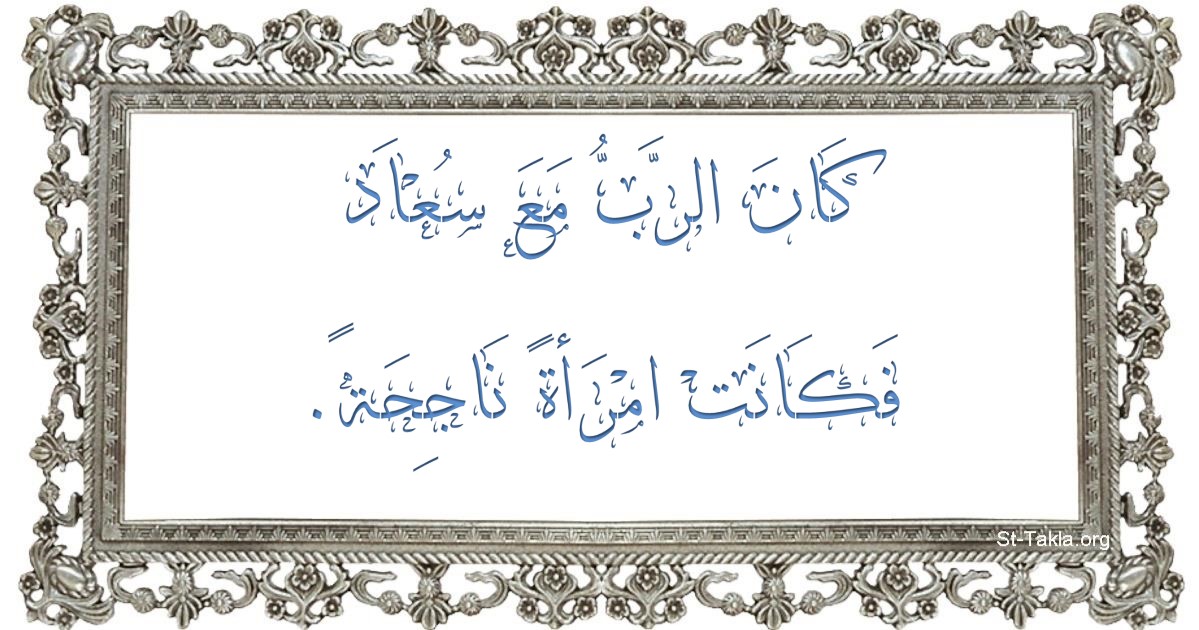 كَانَ الرَّبُّ مَعَ سُعَادَ
فَكَانَتْ امْرَأَةً نَاجِحَةً.
St-Takla.org